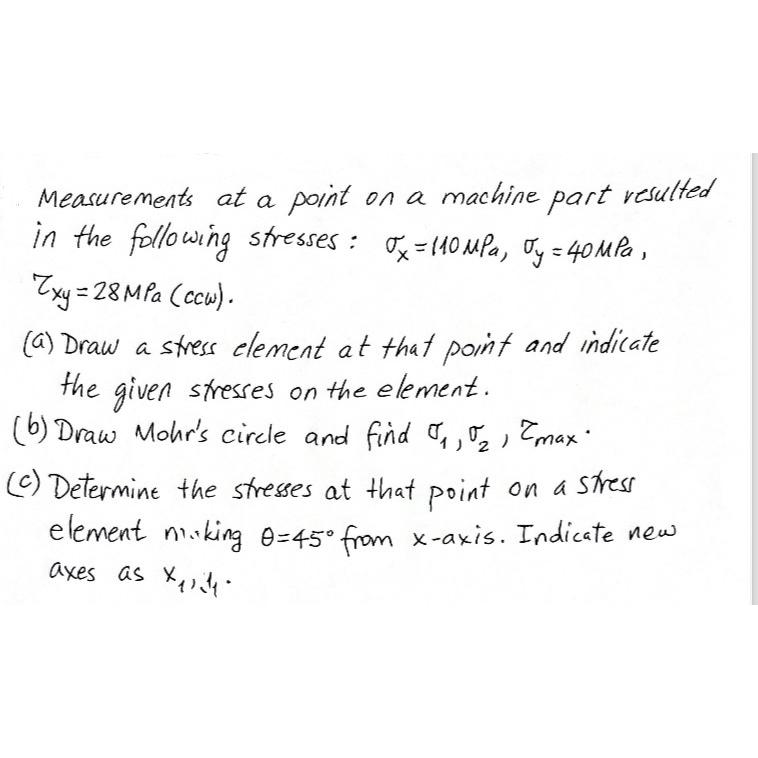 Measurements at a point on a machine part resulted
in the following stresses: σx = 110 MPa, σy = 40 MPa,
τxy = 28 MPa (ccw).
(a) Draw a stress element at that point and indicate
the given stresses on the element.
(b) Draw Mohr's circle and find σ1, σ2, τmax.
(c) Determine the stresses at that point on a stress
element making θ=45° from x-axis. Indicate new
axes as x1, y1.